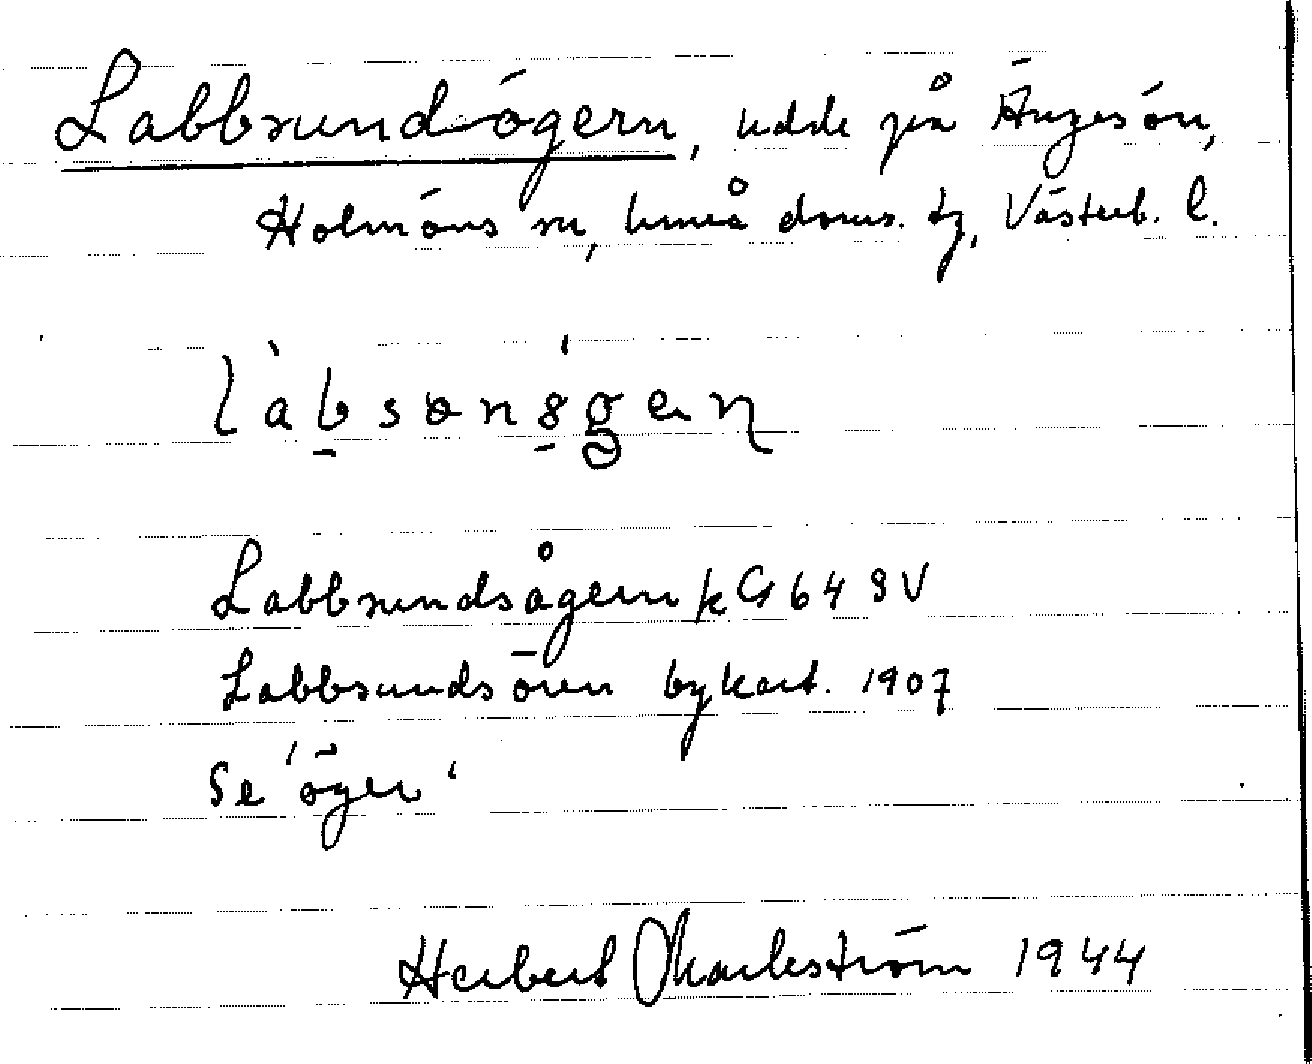 Labbsund-ögern, udde på Ängesön,
Holmöns sn, Umeå doms. tg, Västerb. l.
Labbsundsågern k G 64 SV
Labbsundsören bykart. 1907
Se 'öger'
Herbert Markström 1944